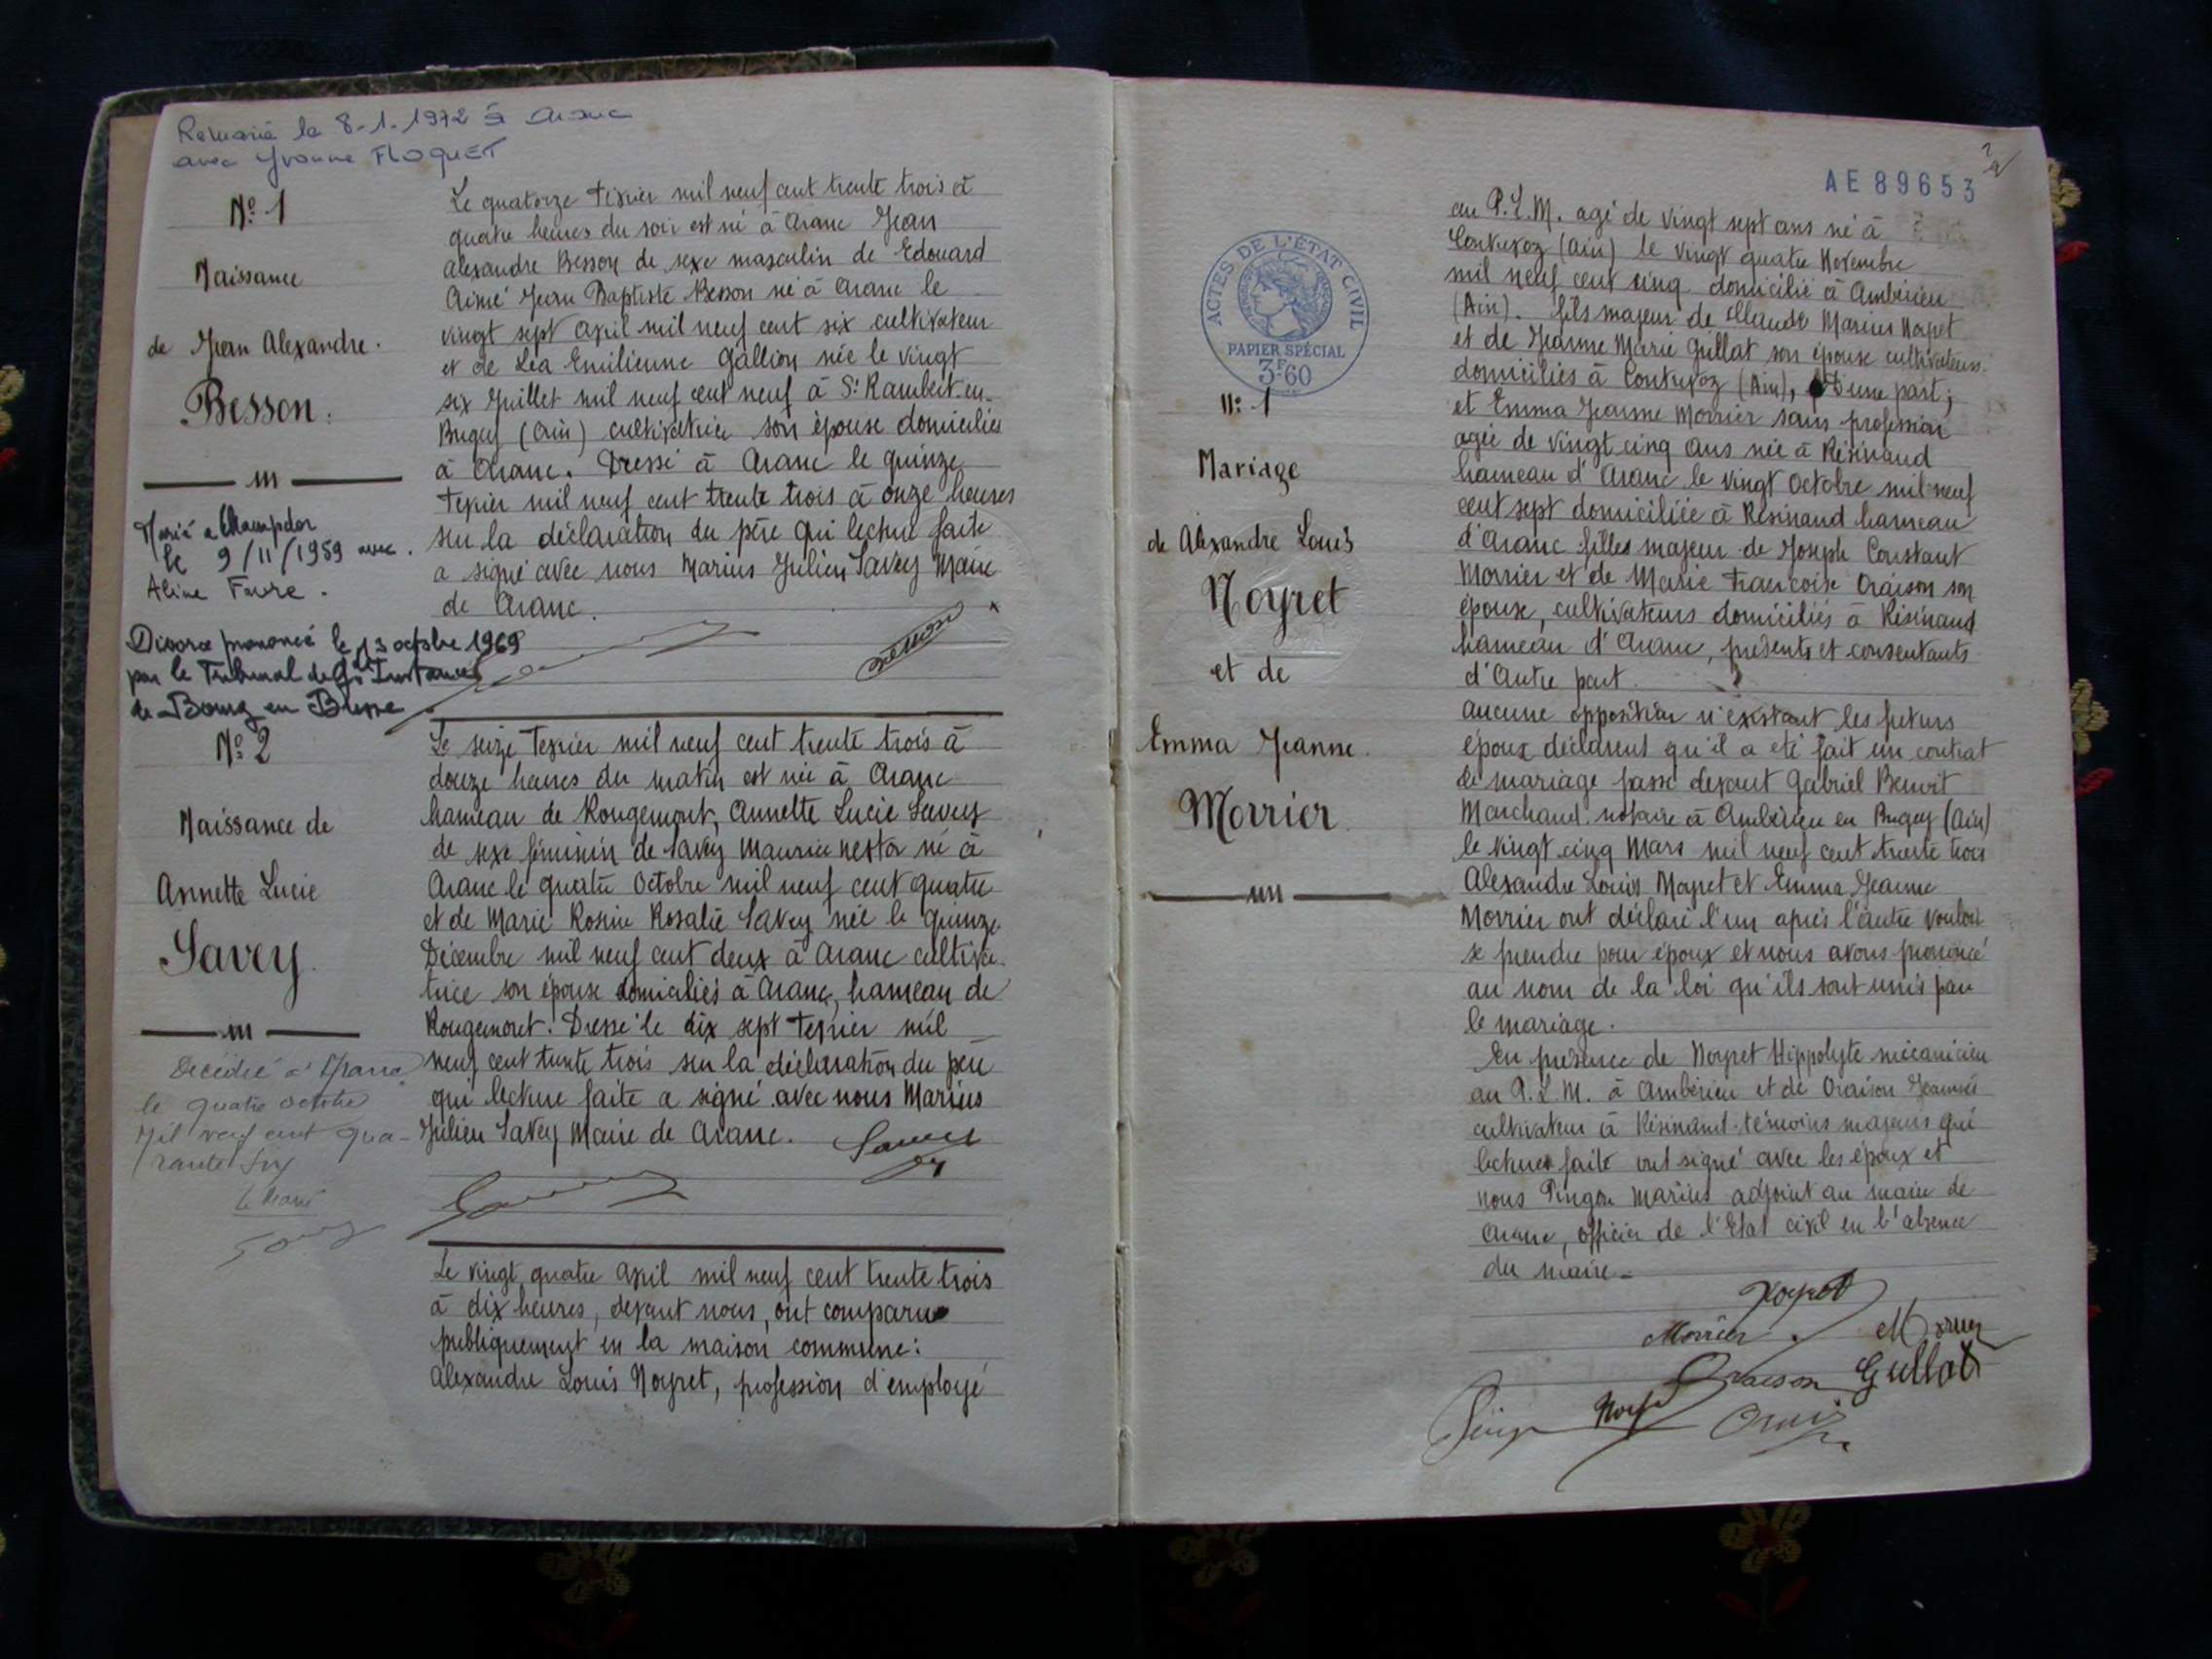 Remarié le 8-1-1972 à Aranc
avec Yvonne FLOQUET
Nº 1
Naissance
de Jean Alexandre.
Besson.
Marié a Champdor
le 9/11/1959 avec.
Aline Favre.
Divorce prononcé le 13 octobre 1969
par le Tribunal de Gde Instance
de Bourg en Bresse
Le quatorze Fevrier mil neuf cent trente trois à
quatre heures du soir est né à Aranc Jean
Alexandre Besson de sexe masculin de Edouard
Aimé Jean Baptiste Besson né à Aranc le
vingt sept avril mil neuf cent six cultivateur
et de Léa Emilienne Gallion née le vingt
six Juillet mil neuf cent neuf à St Rambert-en-
Bugey (Ain) cultivatrice son épouse domiciliés
à Aranc. Dressé à Aranc le quinze
Fevrier mil neuf cent trente trois à onze heures
sur la déclaration du père qui lecture faite
a signé avec nous Marius Julien Savey Maire
de Aranc.
Nº 2
Naissance de
Annette Lucie
Savey.
Décédée à
le quatre octobre
Mil neuf cent qua-
rante six
Le Maire
Le seize Fevrier mil neuf cent trente trois à
douze heures du matin est née à Aranc
hameau de Rougemont, Annette Lucie Savey
de sexe féminin de Savey Maurice Nestor né à
Aranc le quatre Octobre mil neuf cent quatre
et de Marie Rosine Rosalie Savey née le quinze
Décembre mil neuf cent deux à Aranc cultiva-
trice son épouse domiciliés à Aranc, hameau de
Rougemont. Dressé le dix sept Fevrier mil
neuf cent trente trois sur la déclaration du père
qui lecture faite a signé avec nous Marius
Julien Savey Maire de Aranc. Savey
Le vingt quatre avril mil neuf cent trente trois
à dix heures, devant nous, ont comparu
publiquement en la maison commune:
Alexandre Louis Noyret, profession d'employé
AE 89653
ACTES DE L'ÉTAT CIVIL
PAPIER SPÉCIAL
3F60
Nº 1
Mariage
de Alexandre Louis
Noyret
et de
Emma Jeanne.
Morrier
au P.L.M. agé de vingt sept ans né à
Contrevoz (Ain) le vingt quatre Novembre
mil neuf cent cinq domicilié à Ambérieu
(Ain). fils majeur de Claude Marius Noyret
et de Jeanne Marie Gullat son épouse cultivateurs
domiciliés à Contrevoz (Ain), D'une part;
et Emma Jeanne Morrier sans profession
agée de vingt cinq ans née à Résinand
hameau d'Aranc le vingt Octobre mil neuf
cent sept domiciliée à Résinand hameau
d'Aranc filles majeur de Joseph Constant
Morrier et de Marie Francoise Oraison son
épouse, cultivateurs domiciliés à Résinand
hameau d'Aranc, présents et consentants
d'Autre part.
Aucune opposition n'existant les futurs
époux déclarent qu'il a eté fait un contrat
de mariage passé devant Gabriel Benoit
Marchand notaire à Ambérieu en Bugey (Ain)
le vingt cinq Mars mil neuf cent trente trois
Alexandre Louis Noyret et Emma Jeanne
Morrier ont déclaré l'un après l'autre vouloir
se prendre pour époux et nous avons prononcé
au nom de la loi qu'ils sont unis par
le mariage.
En présence de Noyret Hippolyte mécanicien
au P.L.M. à Ambérieu et de Oraison
cultivateur à Résinand témoins majeurs qui
lecture faite ont signé avec les époux et
nous Pingon Marius adjoint au maire de
Aranc, officier de l'Etat civil en l'absence
du maire.
Noyret
Morrier
Oraison Gullat